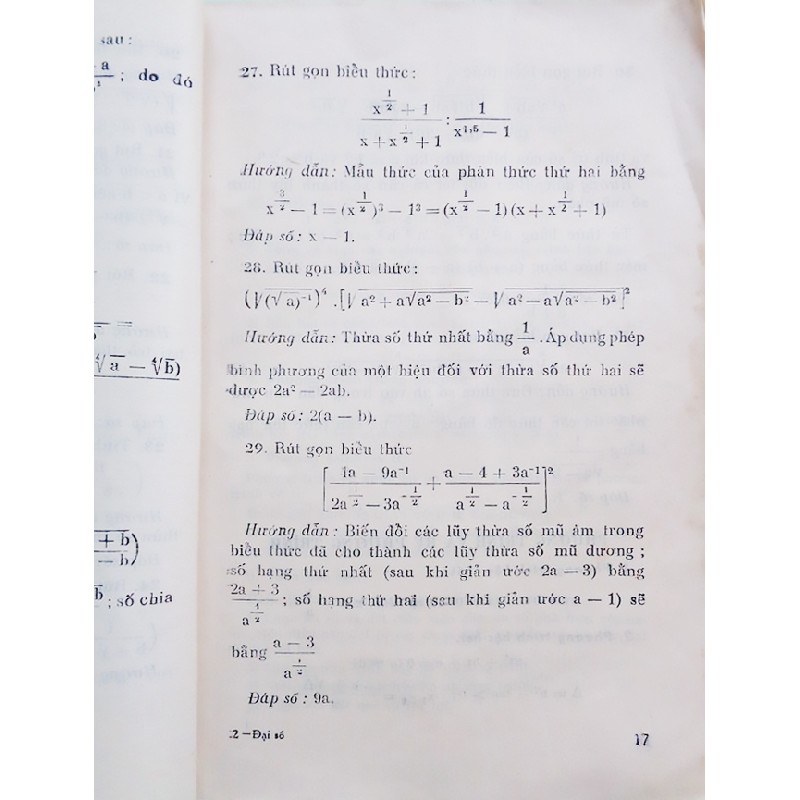 sau :
; do đó
√a̅ − ∜b̅)
; số chia
27. Rút gọn biểu thức :
(x^(1/2) + 1)/(x + x^(1/2) + 1) : 1/(x^(1,5) − 1)
Hướng dẫn : Mẫu thức của phân thức thứ hai bằng
x^(3/2) − 1 = (x^(1/2))³ − 1³ = (x^(1/2) − 1) (x + x^(1/2) + 1)
Đáp số : x − 1.
28. Rút gọn biểu thức :
Hướng dẫn : Thừa số thứ nhất bằng 1/a . Áp dụng phép
bình phương của một hiệu đối với thừa số thứ hai sẽ
được 2a² − 2ab.
Đáp số : 2(a − b).
29. Rút gọn biểu thức
[(4a − 9a⁻¹)/(2a^(1/2) − 3a^(−1/2)) + (a − 4 + 3a⁻¹)/(a^(1/2) − a^(−1/2))]²
Hướng dẫn : Biến đổi các lũy thừa số mũ âm trong
biểu thức đã cho thành các lũy thừa số mũ dương ;
số hạng thứ nhất (sau khi giản ước 2a − 3) bằng
(2a + 3)/a^(1/2) ; số hạng thứ hai (sau khi giản ước a − 1) sẽ
bằng (a − 3)/a^(1/2)
Đáp số : 9a.
2 − Đại số
17